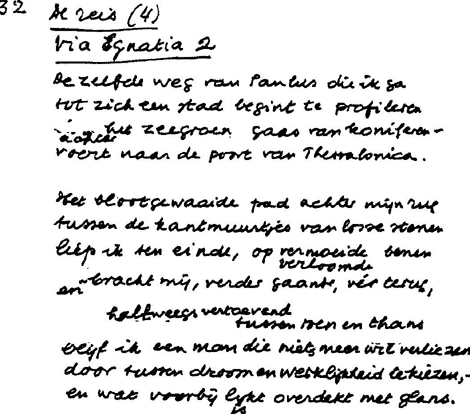 32
De reis (4)
Via Egnatia 2
Dezelfde weg van Paulus die ik ga
tot zich een stad begint te profileren
achter het zeegroen gaas van koniferen -
voert naar de poort van Thessalonica.
Het blootgewaaide pad achter mijn rug
tussen de kantmuurtjes van losse stenen
liep ik ten einde, op vermoeide benen
verloomde
en bracht mij, verder gaande, vér terug,
halfweegs vertoevend
tussen toen en thans
blijf ik een man die niets meer wil verliezen
door tussen droom en werklijkheid te kiezen, -
en wat voorbij lijkt overdekt met glans.
is